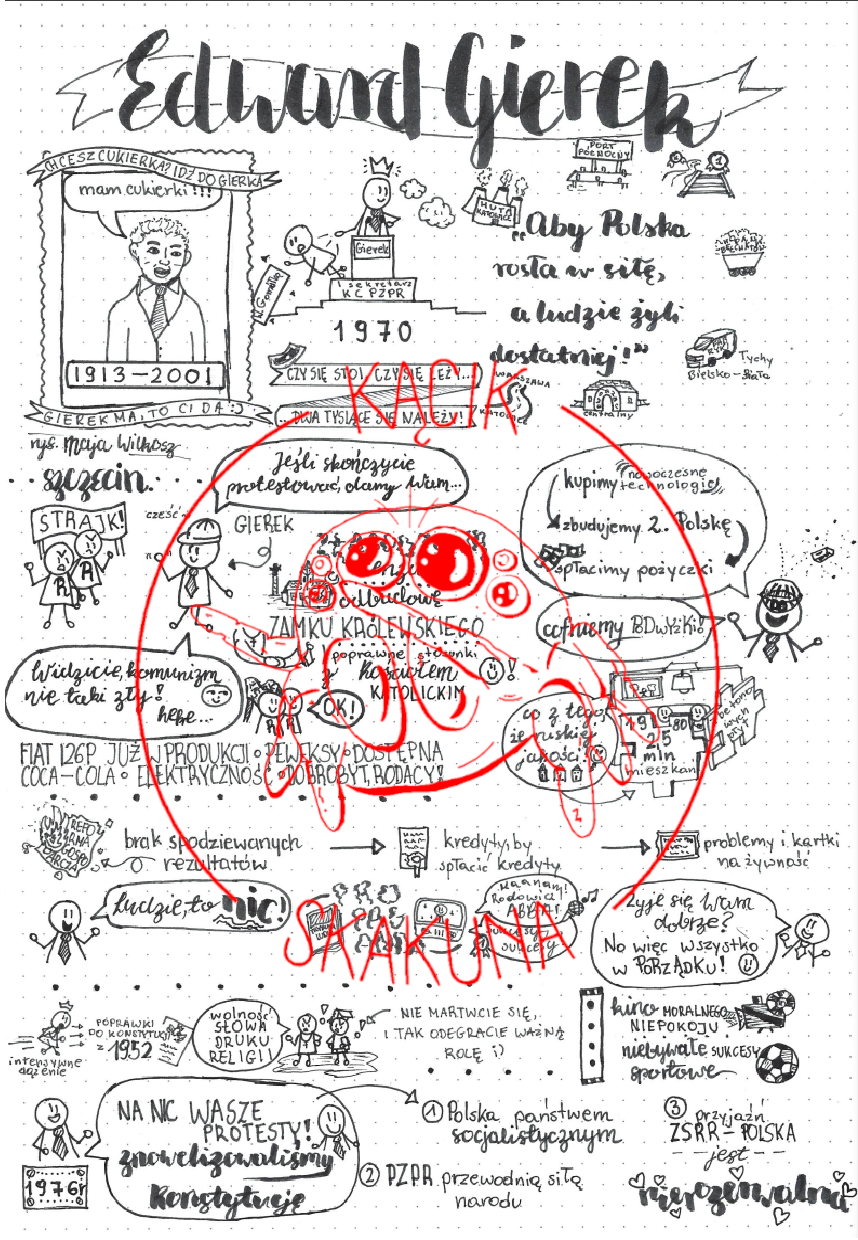 Edward Gierek
CHCESZ CUKIERKA? IDŹ DO GIERKA
mam cukierki!!!
1913-2001
GIEREK MA, TO CI DA :)
rys. Maja Wilkosz
Gierek
I sekretarz
KC PZPR
W. Gomułka
1970
CZY SIĘ STOI, CZY SIĘ LEŻY...
...DWA TYSIĄCE SIĘ NALEŻY!
PORT
PÓŁNOCNY
1
HUTA
KATOWICE
"Aby Polska
rosła w siłę,
a ludzie żyli
dostatniej!"
Tychy
Bielsko-Biała
WARSZAWA
KATOWICE
centralny
KĄCIK
SKAKUNA
szczecin
STRAJK!
R R
cześć
GIEREK
Jeśli skończycie
protestować, damy Wam...
odbudowę
ZAMKU KRÓLEWSKIEGO
poprawne stosunki
z Kościołem
KATOLICKIM
!
Widzicie, komunizm
nie taki zły!
hehe...
OK!
kupimy nowoczesne
technologie
zbudujemy 2. Polskę
spłacimy pożyczki
cofniemy PODWYŻKI!
co z tego,
że ruskiej
jakości!
1971 - 80
2,5
mln
mieszkań
betonowych
płyt
FIAT 126P JUŻ W PRODUKCJI • PEWEKSY • DOSTĘPNA
COCA-COLA • ELEKTRYCZNOŚĆ • DOBROBYT, RODACY!
REFORMA
GOSPODARCZA
brak spodziewanych
rezultatów
kredyty, by
spłacić kredyty
problemy i kartki
na żywność
Ludzie, to nic!
Maanam!
Rodowicz!
sukcesy
sukcesy
Żyje się Wam
dobrze?
No więc wszystko
w PORZĄDKU!
intensywne
dążenie
POPRAWKI
DO KONSTYTUCJI
z 1952
wolność
SŁOWA
DRUKU
RELIGII
NIE MARTWCIE SIĘ,
I TAK ODEGRACIE WAŻNĄ
ROLĘ ;)
kino MORALNEGO
NIEPOKOJU
niebywałe SUKCESY
sportowe
1976r
NA NIC WASZE
PROTESTY!
znowelizowaliśmy
Konstytucję
1 Polska państwem
socjalistycznym
2 PZPR przewodnią siłą
narodu
3 przyjaźń
ZSRR - POLSKA
--jest--
nierozerwalna